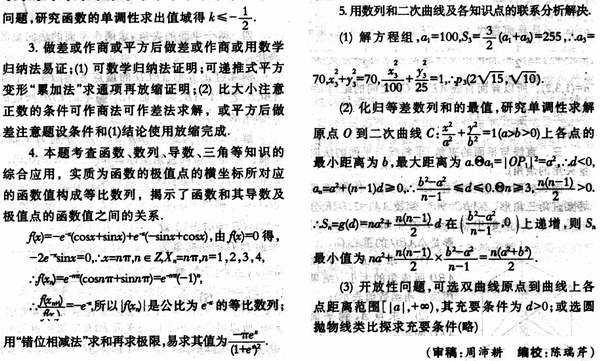 问题,研究函数的单调性求出值域得 k≤-1/2.
3. 做差或作商或平方后做差或作商或用数学
归纳法易证;(1) 可数学归纳法证明;可递推式平方
变形“累加法”求通项再放缩证明;(2) 比大小注意
正数的条件可作商法可作差法求解，或平方后做
差注意题设条件和(1)结论使用放缩完成.
4. 本题考查函数、数列、导数、三角等知识的
综合应用，实质为函数的极值点的横坐标所对应
的函数值构成等比数列，揭示了函数和其导数及
极值点的函数值之间的关系.
f(x)=-e⁻ˣ(cosx+sinx)+e⁻ˣ(-sinx+cosx),由 f(x)=0 得,
-2e⁻ˣsinx=0,∴x=nπ,n∈Z,xₙ=nπ,n=1,2,3,4,
∴f(xₙ)=e⁻ⁿᵖ(cosnπ+sinnπ)=e⁻ⁿᵖ(-1)ⁿ,
=-e⁻ᵖ,所以|f(xₙ)|是公比为 e⁻ᵖ 的等比数列;
用“错位相减法”求和再求极限,易求其值为
5. 用数列和二次曲线及各知识点的联系分析解决.
(1) 解方程组,a₁=100,S₃=3/2(a₁+a₃)=255,∴a₃=
70,x₃²+y₃²=70,x₃²/100+y₃²/25=1,∴p₃(2√15,√10).
(2) 化归等差数列和的最值,研究单调性求解
原点 O 到二次曲线 C:x²/a²+y²/b²=1(a>b>0)上各点的
最小距离为 b,最大距离为 a.Θa₁=|OP₁|²=a²,∴d<0,
aₙ=a²+(n-1)d≥0,∴(b²-a²)/(n-1)≤d≤0.Θn≥3,n(n-1)/2>0.
∴Sₙ=g(d)=na²+n(n-1)/2 d 在((b²-a²)/(n-1),0)上递增,则 Sₙ
最小值为 na²+n(n-1)/2×(b²-a²)/(n-1)=n(a²+b²)/2.
(3) 开放性问题,可选双曲线原点到曲线上各
点距离范围[|a|,+∞),其充要条件为 d>0;或选圆
抛物线类比探求充要条件(略)
(审稿:周沛耕 编校:陈瑞芹)